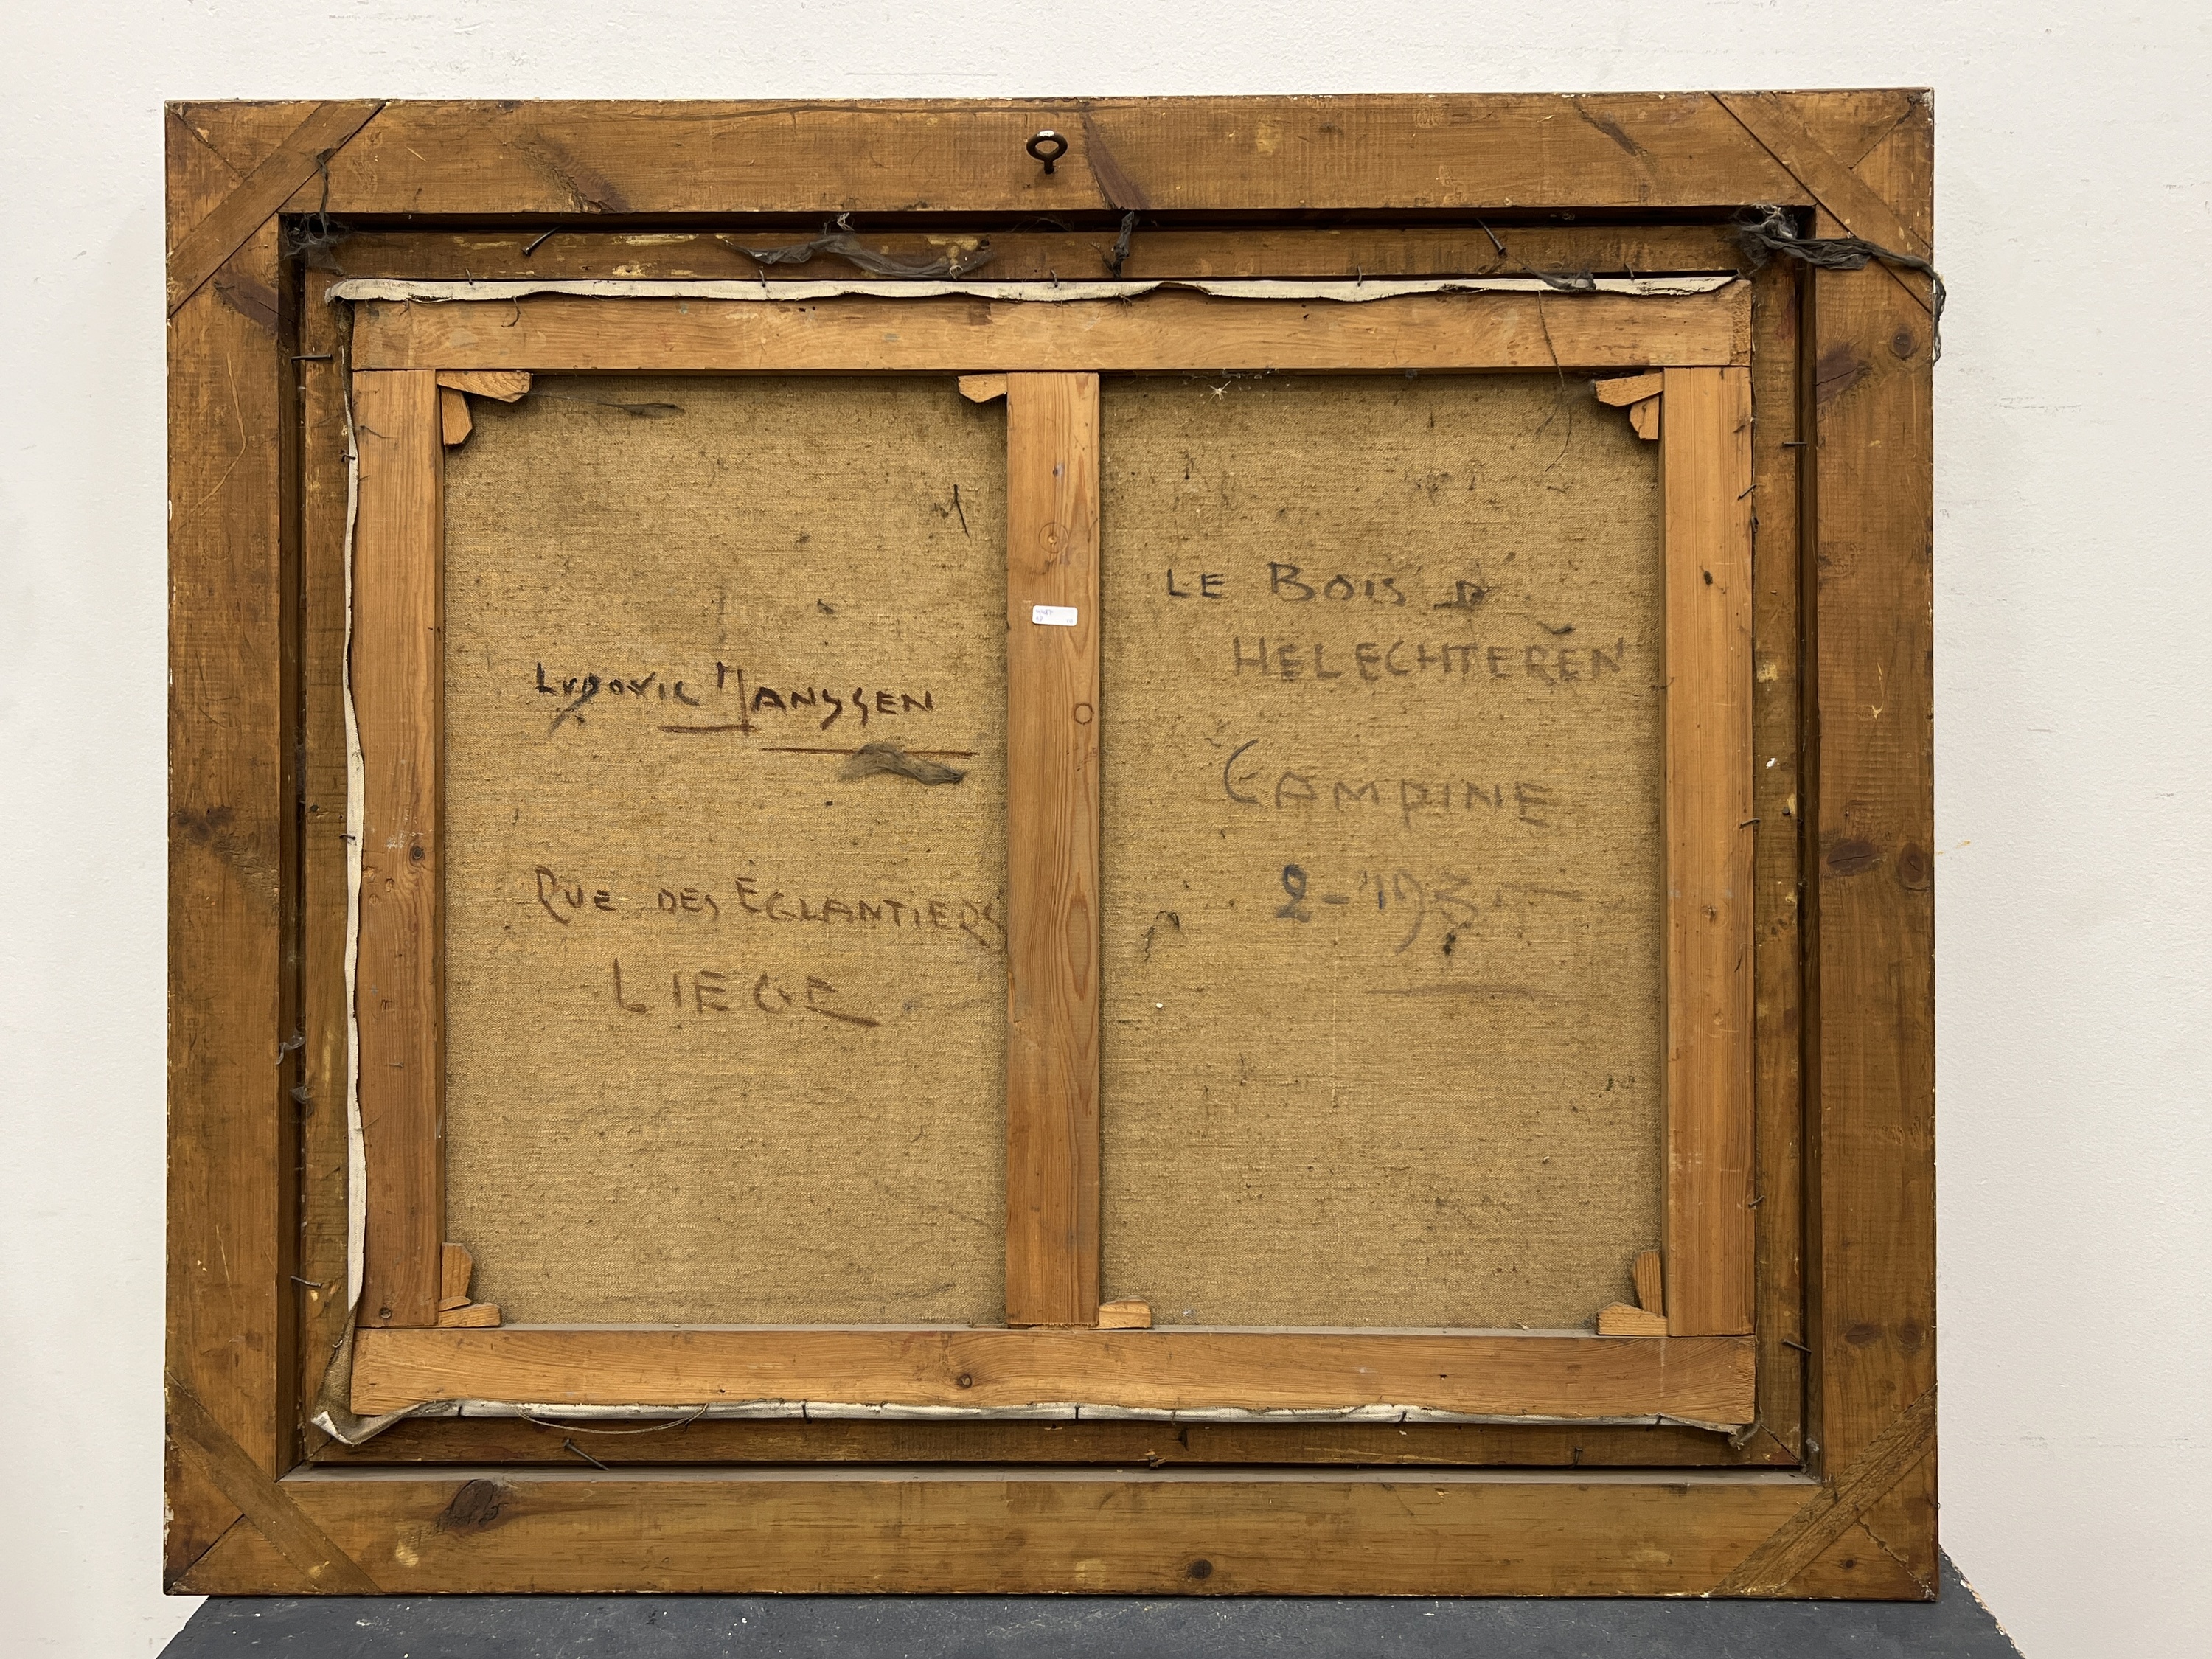 LUDOVIC JANSSEN
RUE DES EGLANTIERS
LIEGE
LE BOIS D
HELECHTEREN
CAMPINE
2-1935